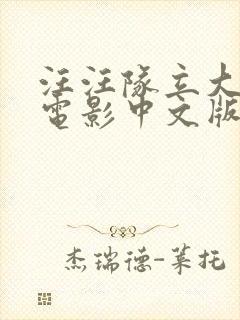 汪汪隊立大
電影中文版
杰瑞德-莱托